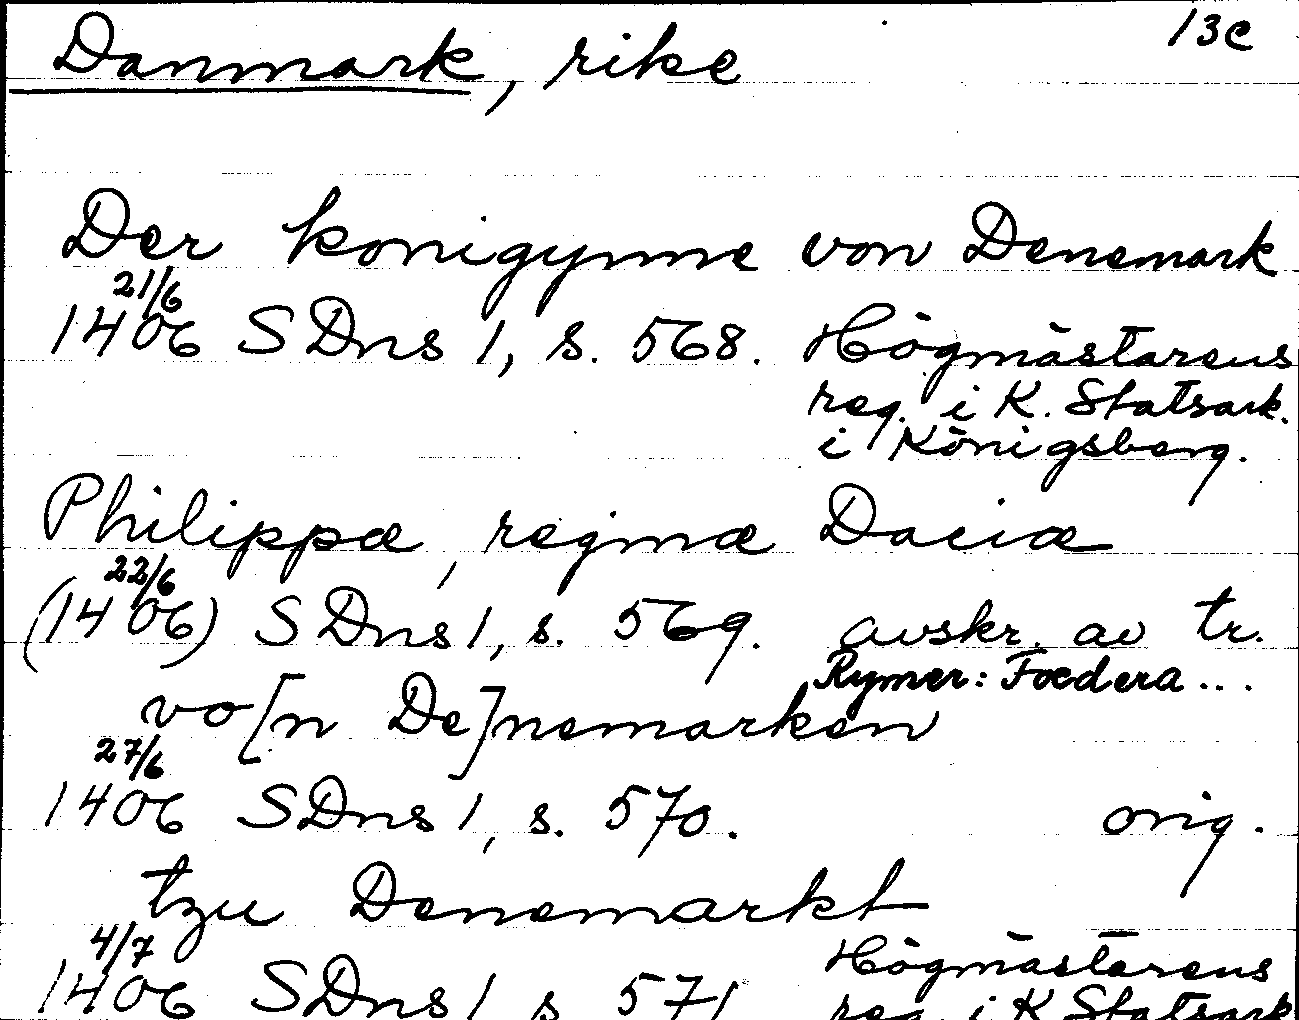 Danmark, rike 13c
Der konigynne von Denemark
21/6
1406 SDns 1, s. 568. Högmästarens
reg. i K. Statsark.
i Königsberg.
Philippæ, reginæ Daciæ
22/6
(1406) SDns 1, s. 569. avskr. av tr.
Rymer: Fœdera...
vo[n De]nemarken
27/6
1406 SDns 1, s. 570. orig.
tzu Denemarkt
4/7
1406 SDns 1 s 571 Högmästarens
reg. i K Statsark